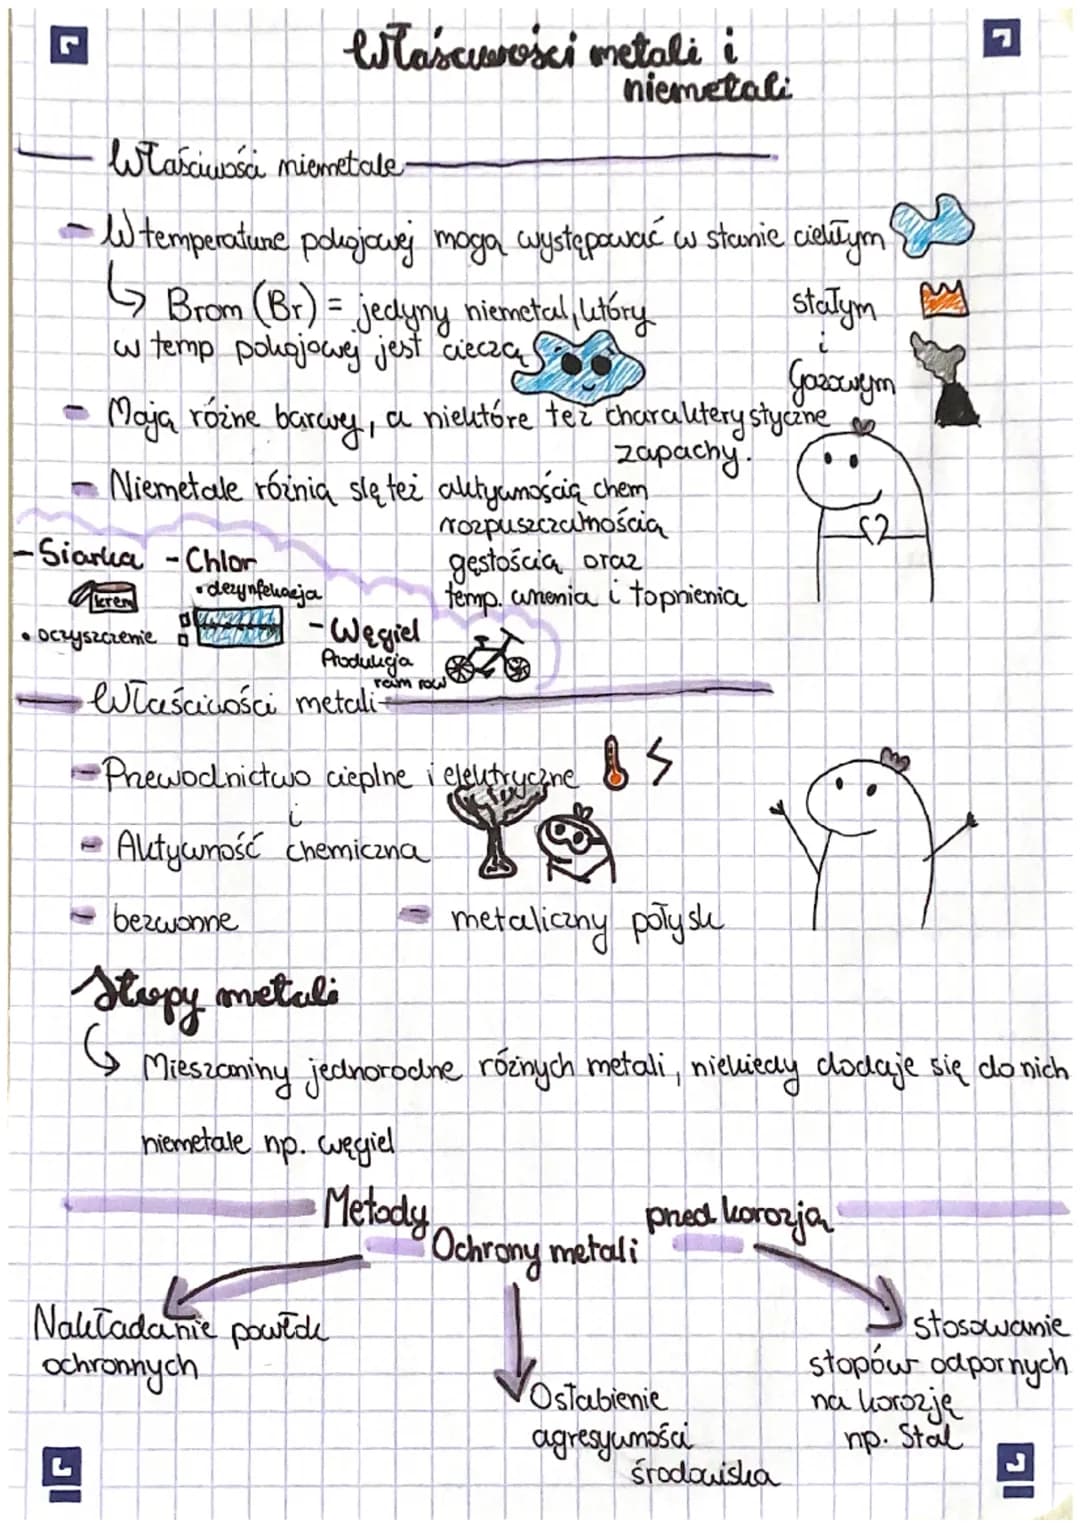 Właściwości metali i
niemetali
Właściwości niemetale
- W temperaturze pokojowej mogą występować w stanie ciekłym
stałym
i
Gazowym
↳ Brom (Br) = jedyny niemetal, który
w temp pokojowej jest cieczą
- Mają różne barwy, a niektóre też charakterystyczne
zapachy.
- Niemetale różnią się też aktywnością chem
rozpuszczalnością
gęstością oraz
temp. wrzenia i topnienia
- Siarka
krem
• oczyszczenie
- Chlor
• dezynfekcja
- Węgiel
Produkcja
ram row
Właściwości metali
- Przewodnictwo cieplne i elektryczne
i
- Aktywność chemiczna
- bezwonne
- metaliczny połysk
Stopy metali
↳ Mieszaniny jednorodne różnych metali, niekiedy dodaje się do nich
niemetale np. węgiel
Metody
Ochrony metali
przed korozją
Nakładanie powłok
ochronnych
Osłabienie
agresywności
środowiska
stosowanie
stopów odpornych
na korozję
np. Stal